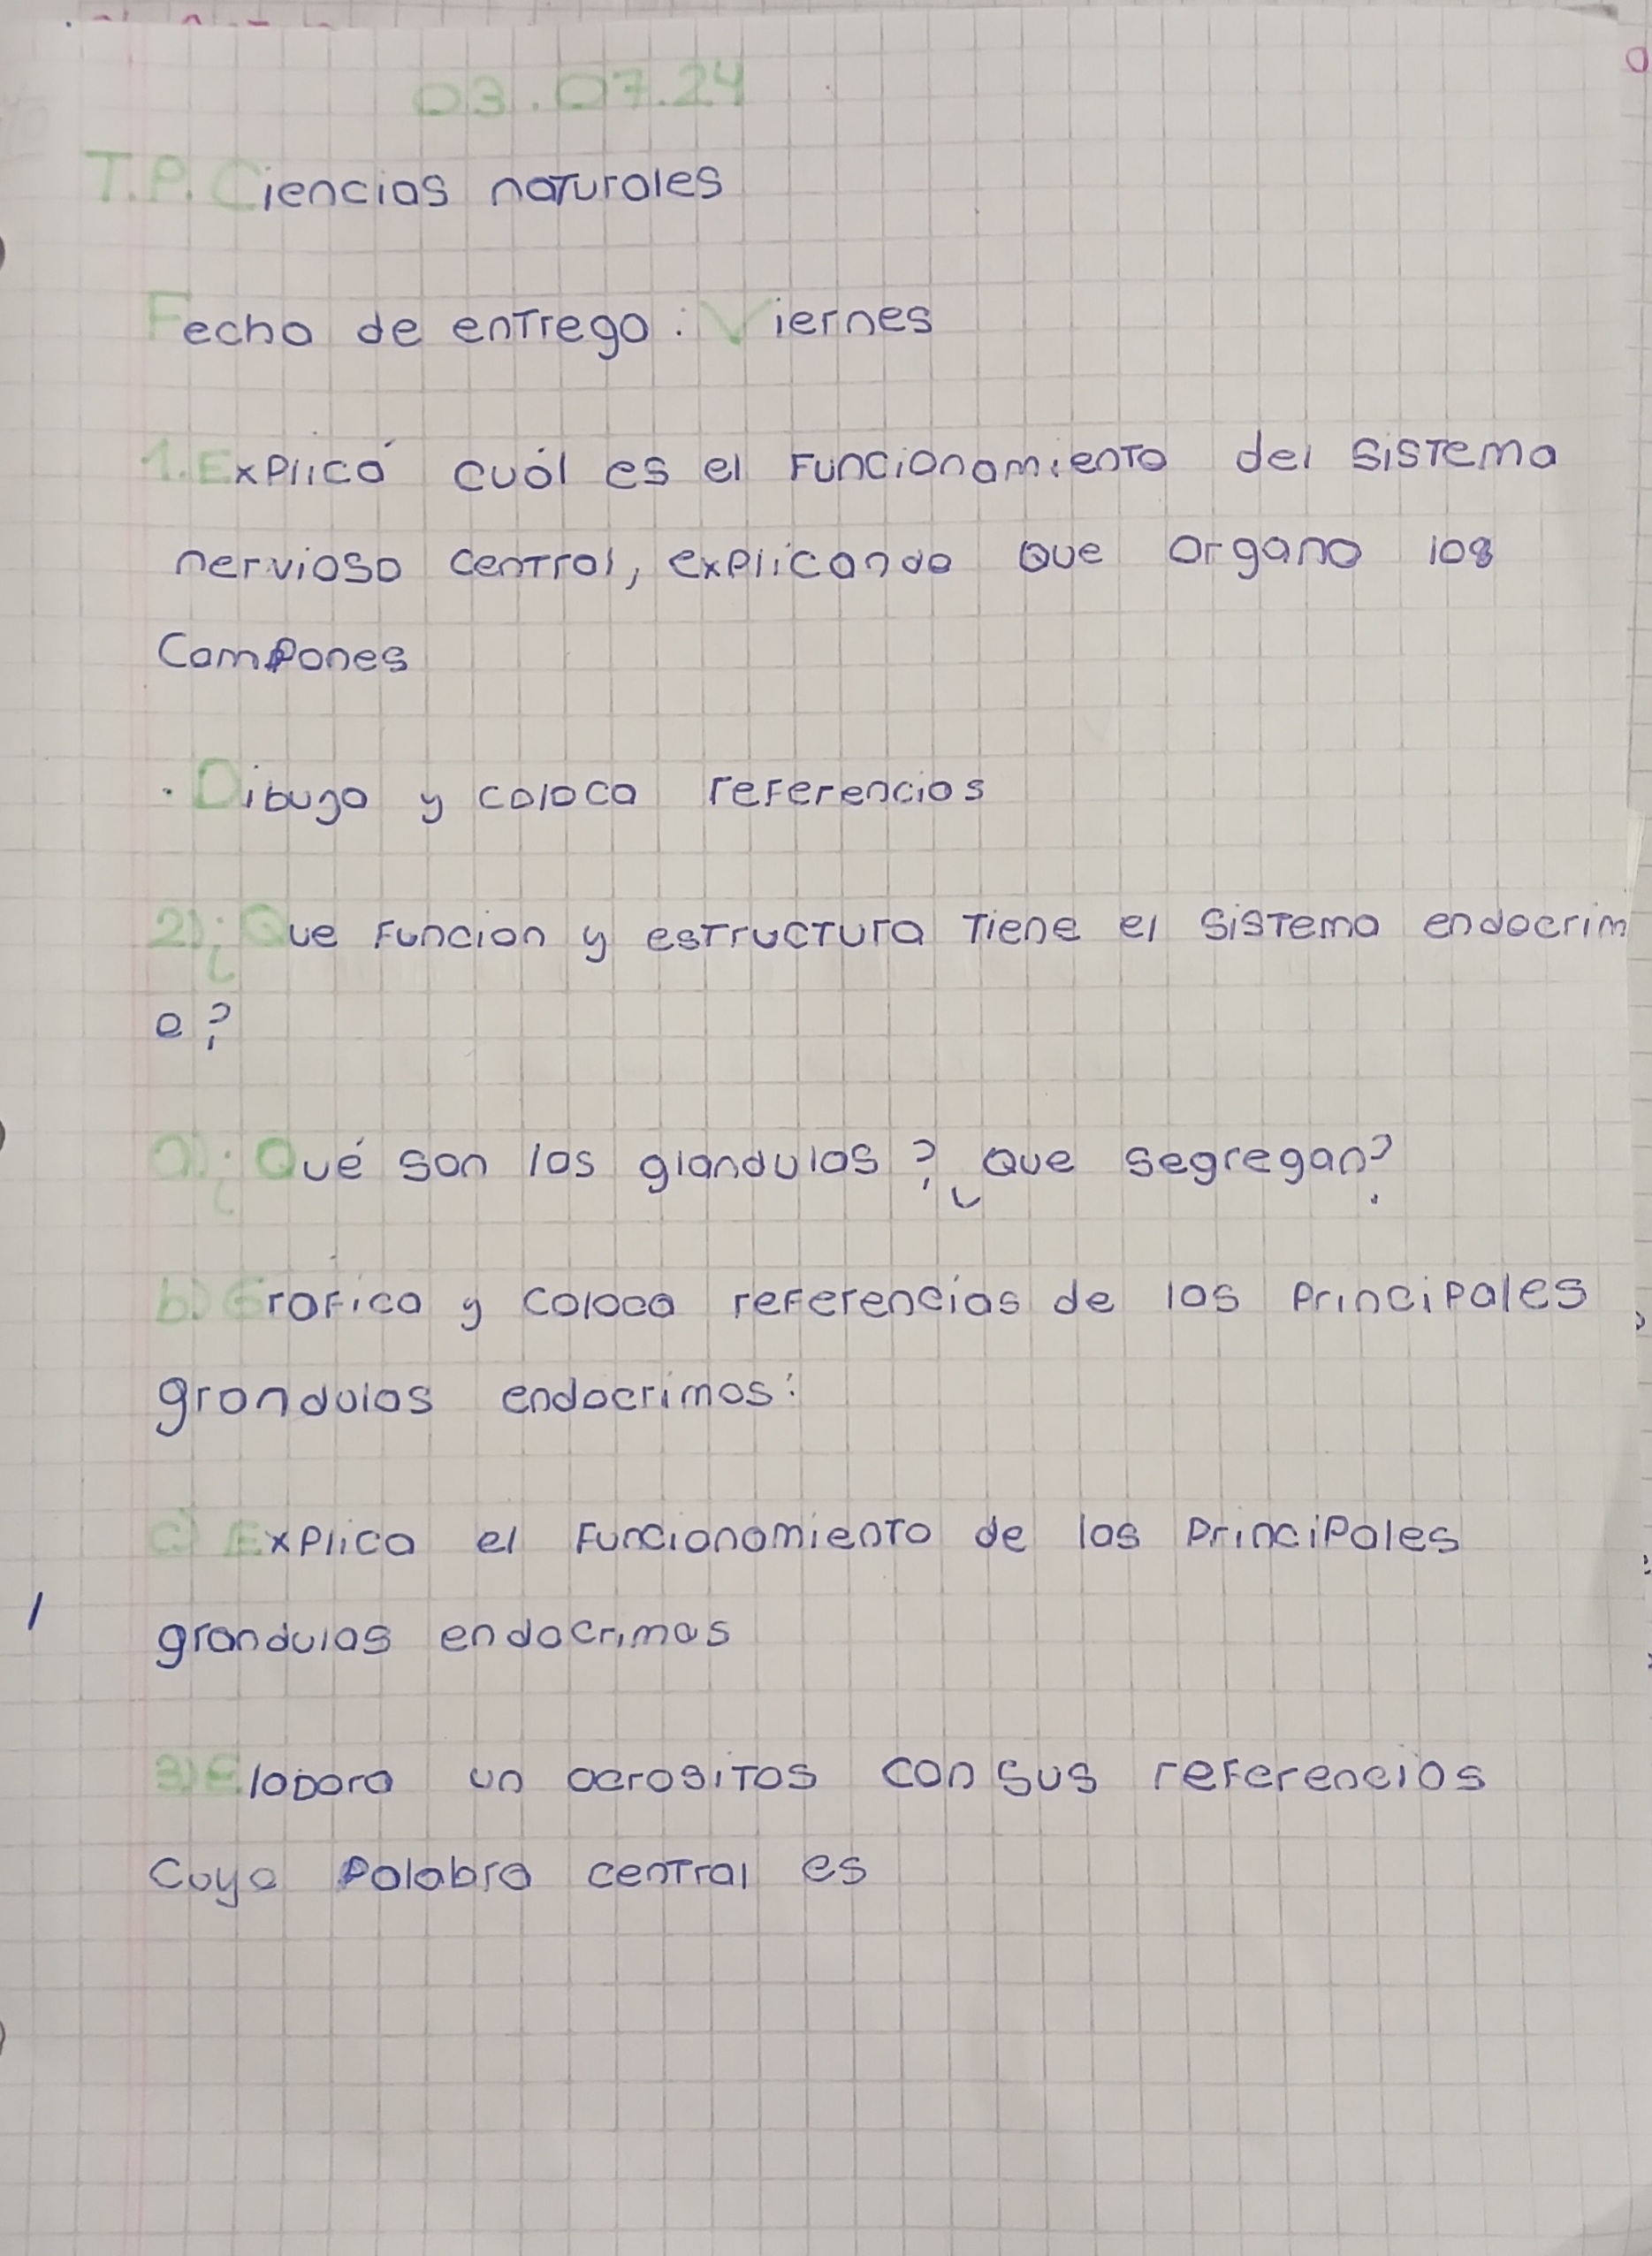 03.07.24
T.P. Ciencias naturales
Fecha de entrega: Viernes
1. Explicá cuál es el Funcionamiento del sistema
nervioso central, explicando que organo los
Campones
· Dibuja y coloca referencias
2) ¿Que Funcion y estructura tiene el sistema endocrim
o?
a) ¿Qué son las glandulas? ¿Que segregan?
b) Grafica y coloca referencias de las principales
grandulas endocrimas:
c) Explica el Funcionamiento de las principales
grandulas endocrimas
3) Elabora un acrositos con sus referencias
Cuya Palabra central es